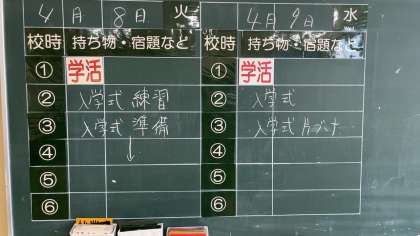 4月8日 火
校時 持ち物・宿題など
① 学活
② 入学式 練習
③ 入学式 準備
④ ↓
⑤
⑥
4月9日 水
校時 持ち物・宿題など
① 学活
② 入学式
③ 入学式片づけ
④
⑤
⑥